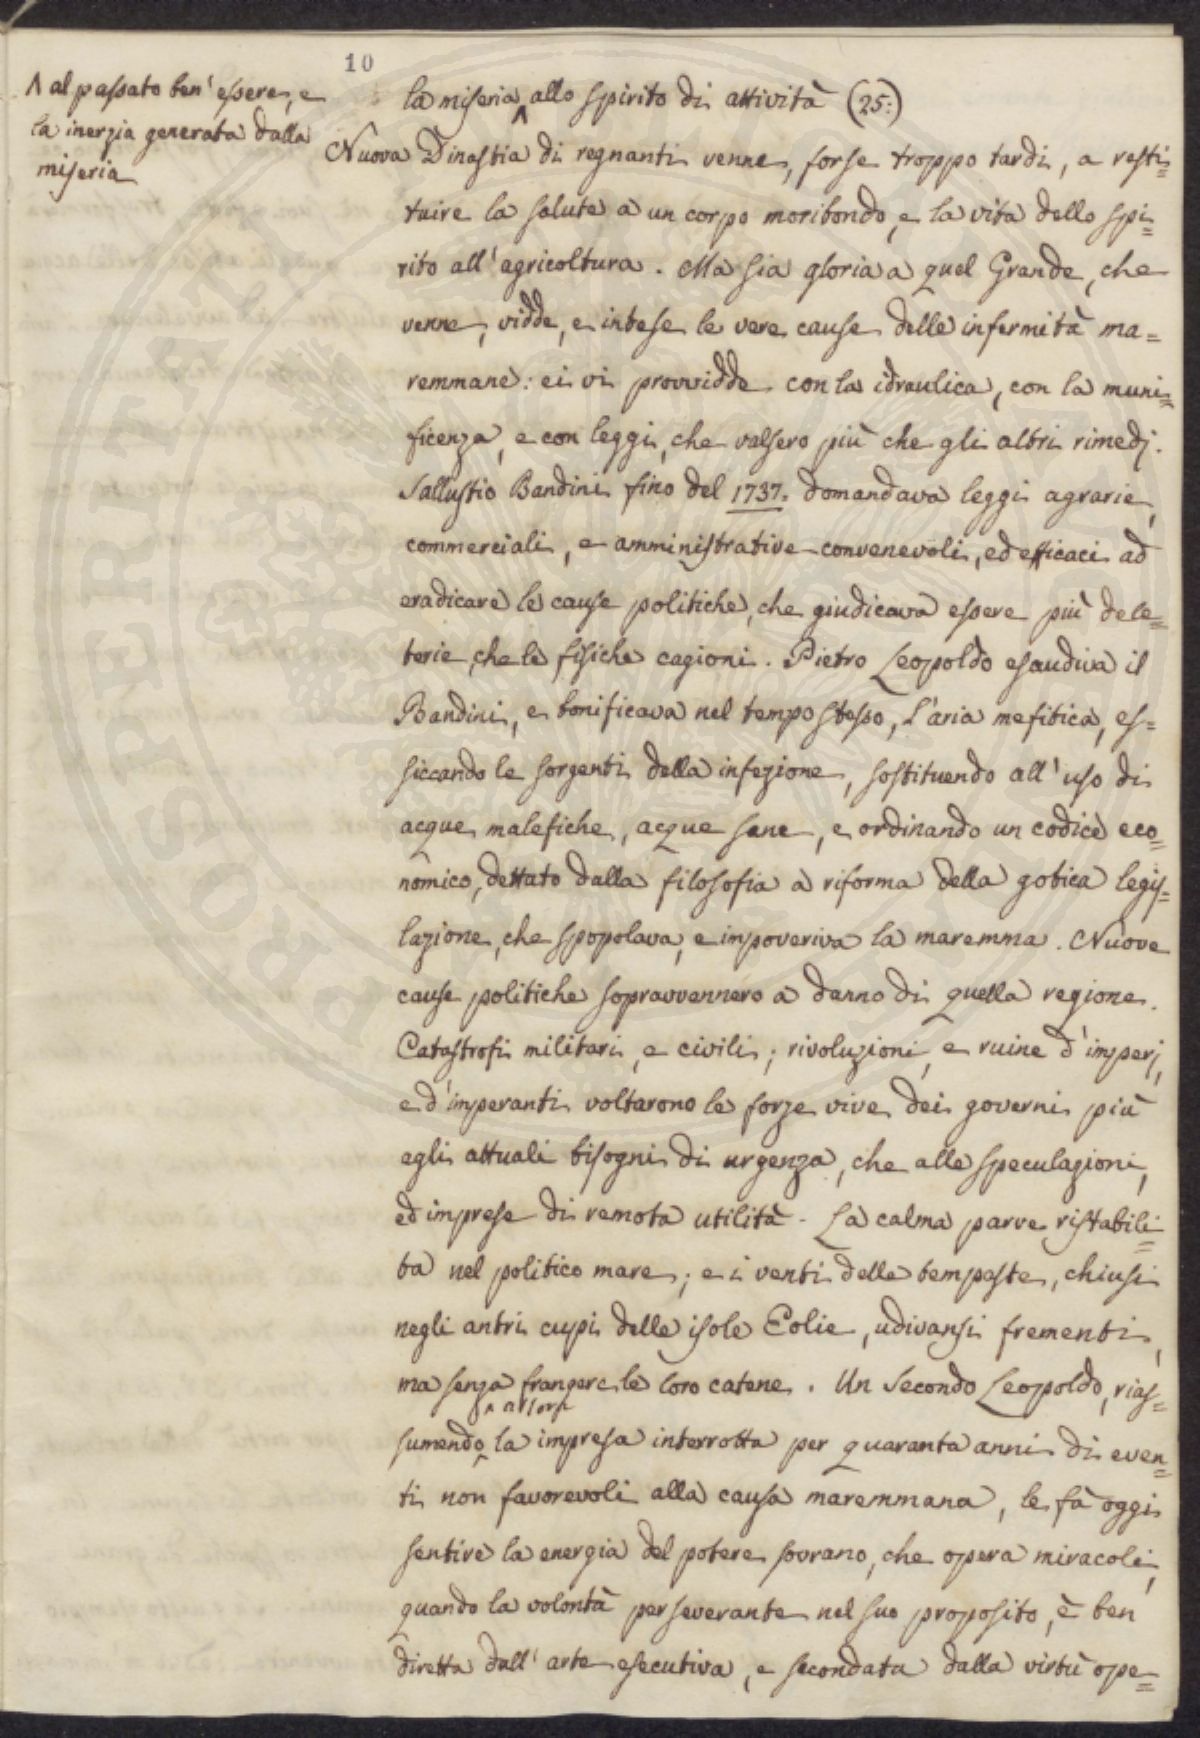 10
^ al passato ben'essere, e
la inerzia generata dalla
miseria
la miseria ^ allo spirito di attività (25:)
Nuova Dinastia di regnanti venne, forse troppo tardi, a resti=
tuire la salute a un corpo moribondo, e la vita dello spi=
rito all'agricoltura. Ma sia gloria a quel Grande, che
venne, vidde, e intese le vere cause delle infermità ma=
remmane: ei vi provvidde con la idraulica, con la muni=
ficenza, e con leggi, che valsero più che gli altri rimedj.
Sallustio Bandini fino del 1737. domandava leggi agrarie,
commerciali, e amministrative convenevoli, ed efficaci ad
eradicare le cause politiche, che giudicava essere più dele=
terie, che le fisiche cagioni. Pietro Leopoldo esaudiva il
Bandini, e bonificava nel tempo stesso, l'aria mefitica, es=
siccando le sorgenti della infezione, sostituendo all'uso di
acque malefiche, acque sane, e ordinando un codice eco=
nomico, dettato dalla filosofia a riforma della gotica legis=
lazione, che spopolava, e impoveriva la maremma. Nuove
cause politiche sopravvennero a danno di quella regione.
Catastrofi militari, e civili; rivoluzioni, e ruine d'imperj,
e d'imperanti voltarono le forze vive dei governi più
agli attuali bisogni di urgenza, che alle speculazioni,
ed imprese di remota utilità. La calma parve ristabili=
ta nel politico mare; e i venti delle tempeste, chiusi
negli antri cupi delle isole Eolie, udivansi frementi,
ma senza frangere le loro catene. Un Secondo Leopoldo, rias=
^ allora
sumendo ^ la impresa interrotta per quaranta anni di even=
ti non favorevoli alla causa maremmana, le fà oggi
sentire la energia del potere sovrano, che opera miracoli,
quando la volontà perseverante nel suo proposito, è ben
diretta dall'arte esecutiva, e secondata dalla virtù ope=
PROSPERITATI